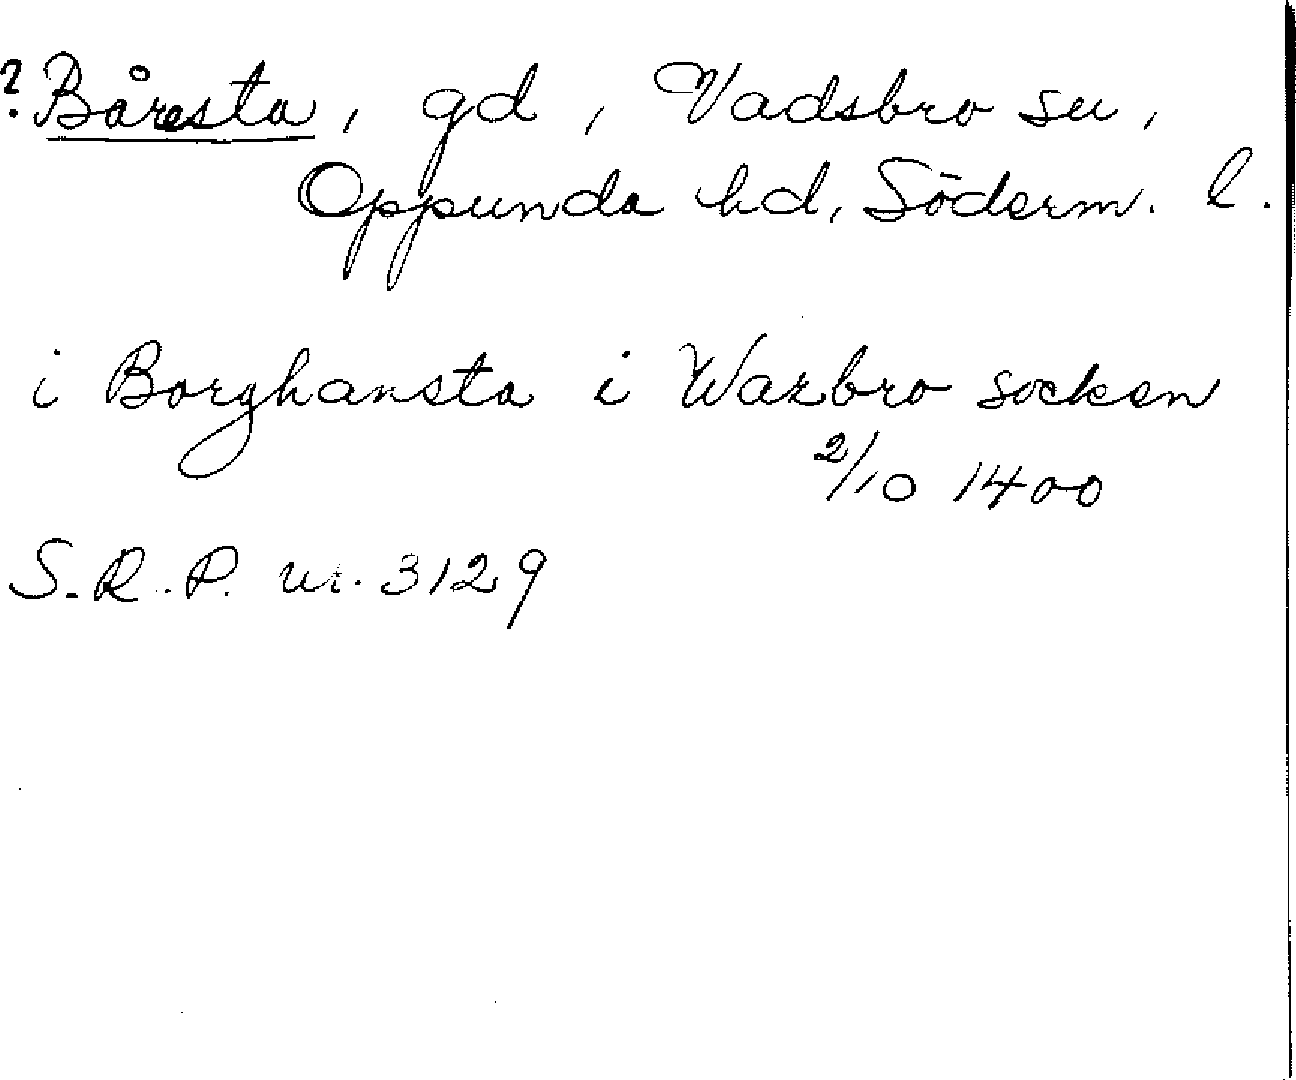 ? Båresta, gd, Vadsbro sn,
Oppunda hd, Söderm. l.
i Borghansta i Wazbro socken
2/10 1400
S.R.P. nr. 3129